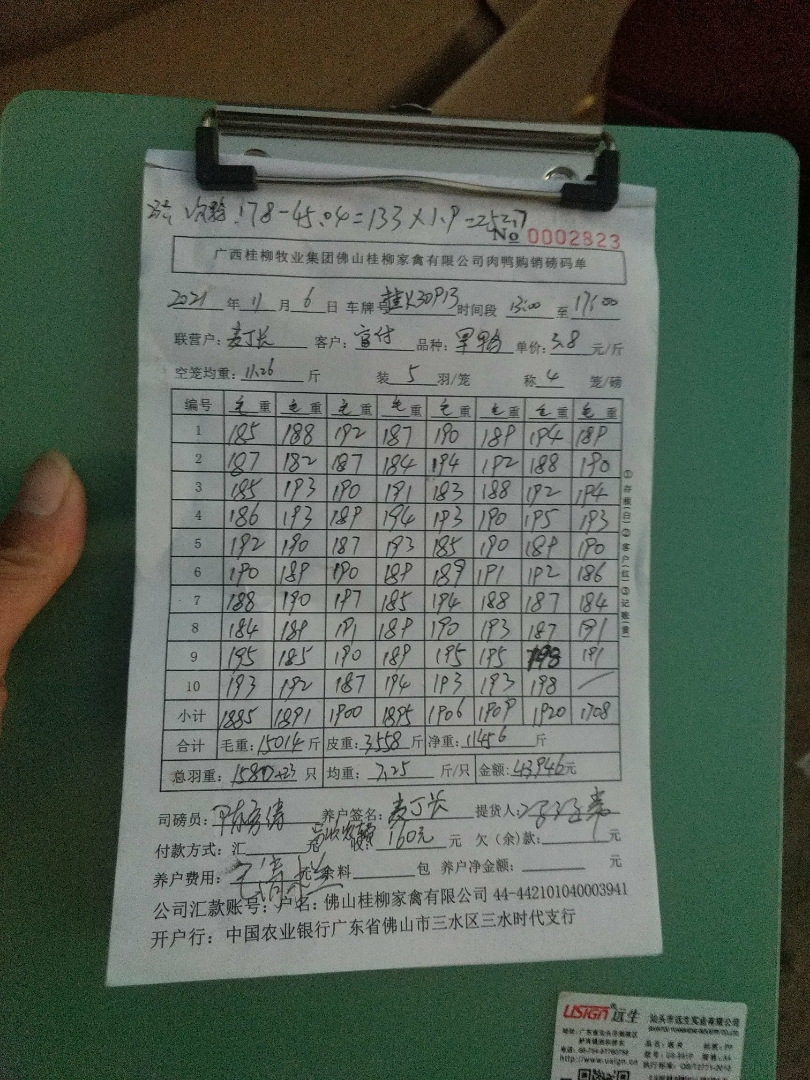 178-45.04=133×1.9=252.7
No 0002823
广西桂柳牧业集团佛山桂柳家禽有限公司肉鸭购销磅码单
2021年11月6日 车牌号 时间段 13:00 至 17:00
联营户:麦丁长 客户:富付 品种: 单价:3.8元/斤
空笼均重:11.26斤 装5羽/笼 称4笼/磅
编号 毛重 毛重 毛重 毛重 毛重 毛重 毛重 毛重
1 185 188 192 187 190 189 194 189
2 187 182 187 184 194 192 188 190
3 185 193 190 191 183 188 192 194
4 186 193 189 194 193 190 195 193
5 192 190 187 193 185 190 189 190
6 190 189 190 189 189 191 192 186
7 188 190 197 185 194 188 187 184
8 184 189 191 189 190 193 187 191
9 195 185 190 189 195 195 198 191
10 193 192 187 194 193 193 198
小计 1885 1891 1900 1895 1906 1909 1920 1708
合计 毛重:15014斤 皮重:3558斤 净重:11456斤
总羽重:1580+23只 均重:7.25斤/只 金额:43946元
司磅员: 养户签名:麦丁长 提货人:
付款方式:汇 元 收 160元 元 欠(余)款: 元
养户费用: 元 余料 包 养户净金额: 元
公司汇款账号:户名:佛山桂柳家禽有限公司 44-442101040003941
开户行:中国农业银行广东省佛山市三水区三水时代支行
①存根(白)②客户(红)③记账(黄)
USIGN 远生
汕头市远生实业有限公司
http://www.usign.cn